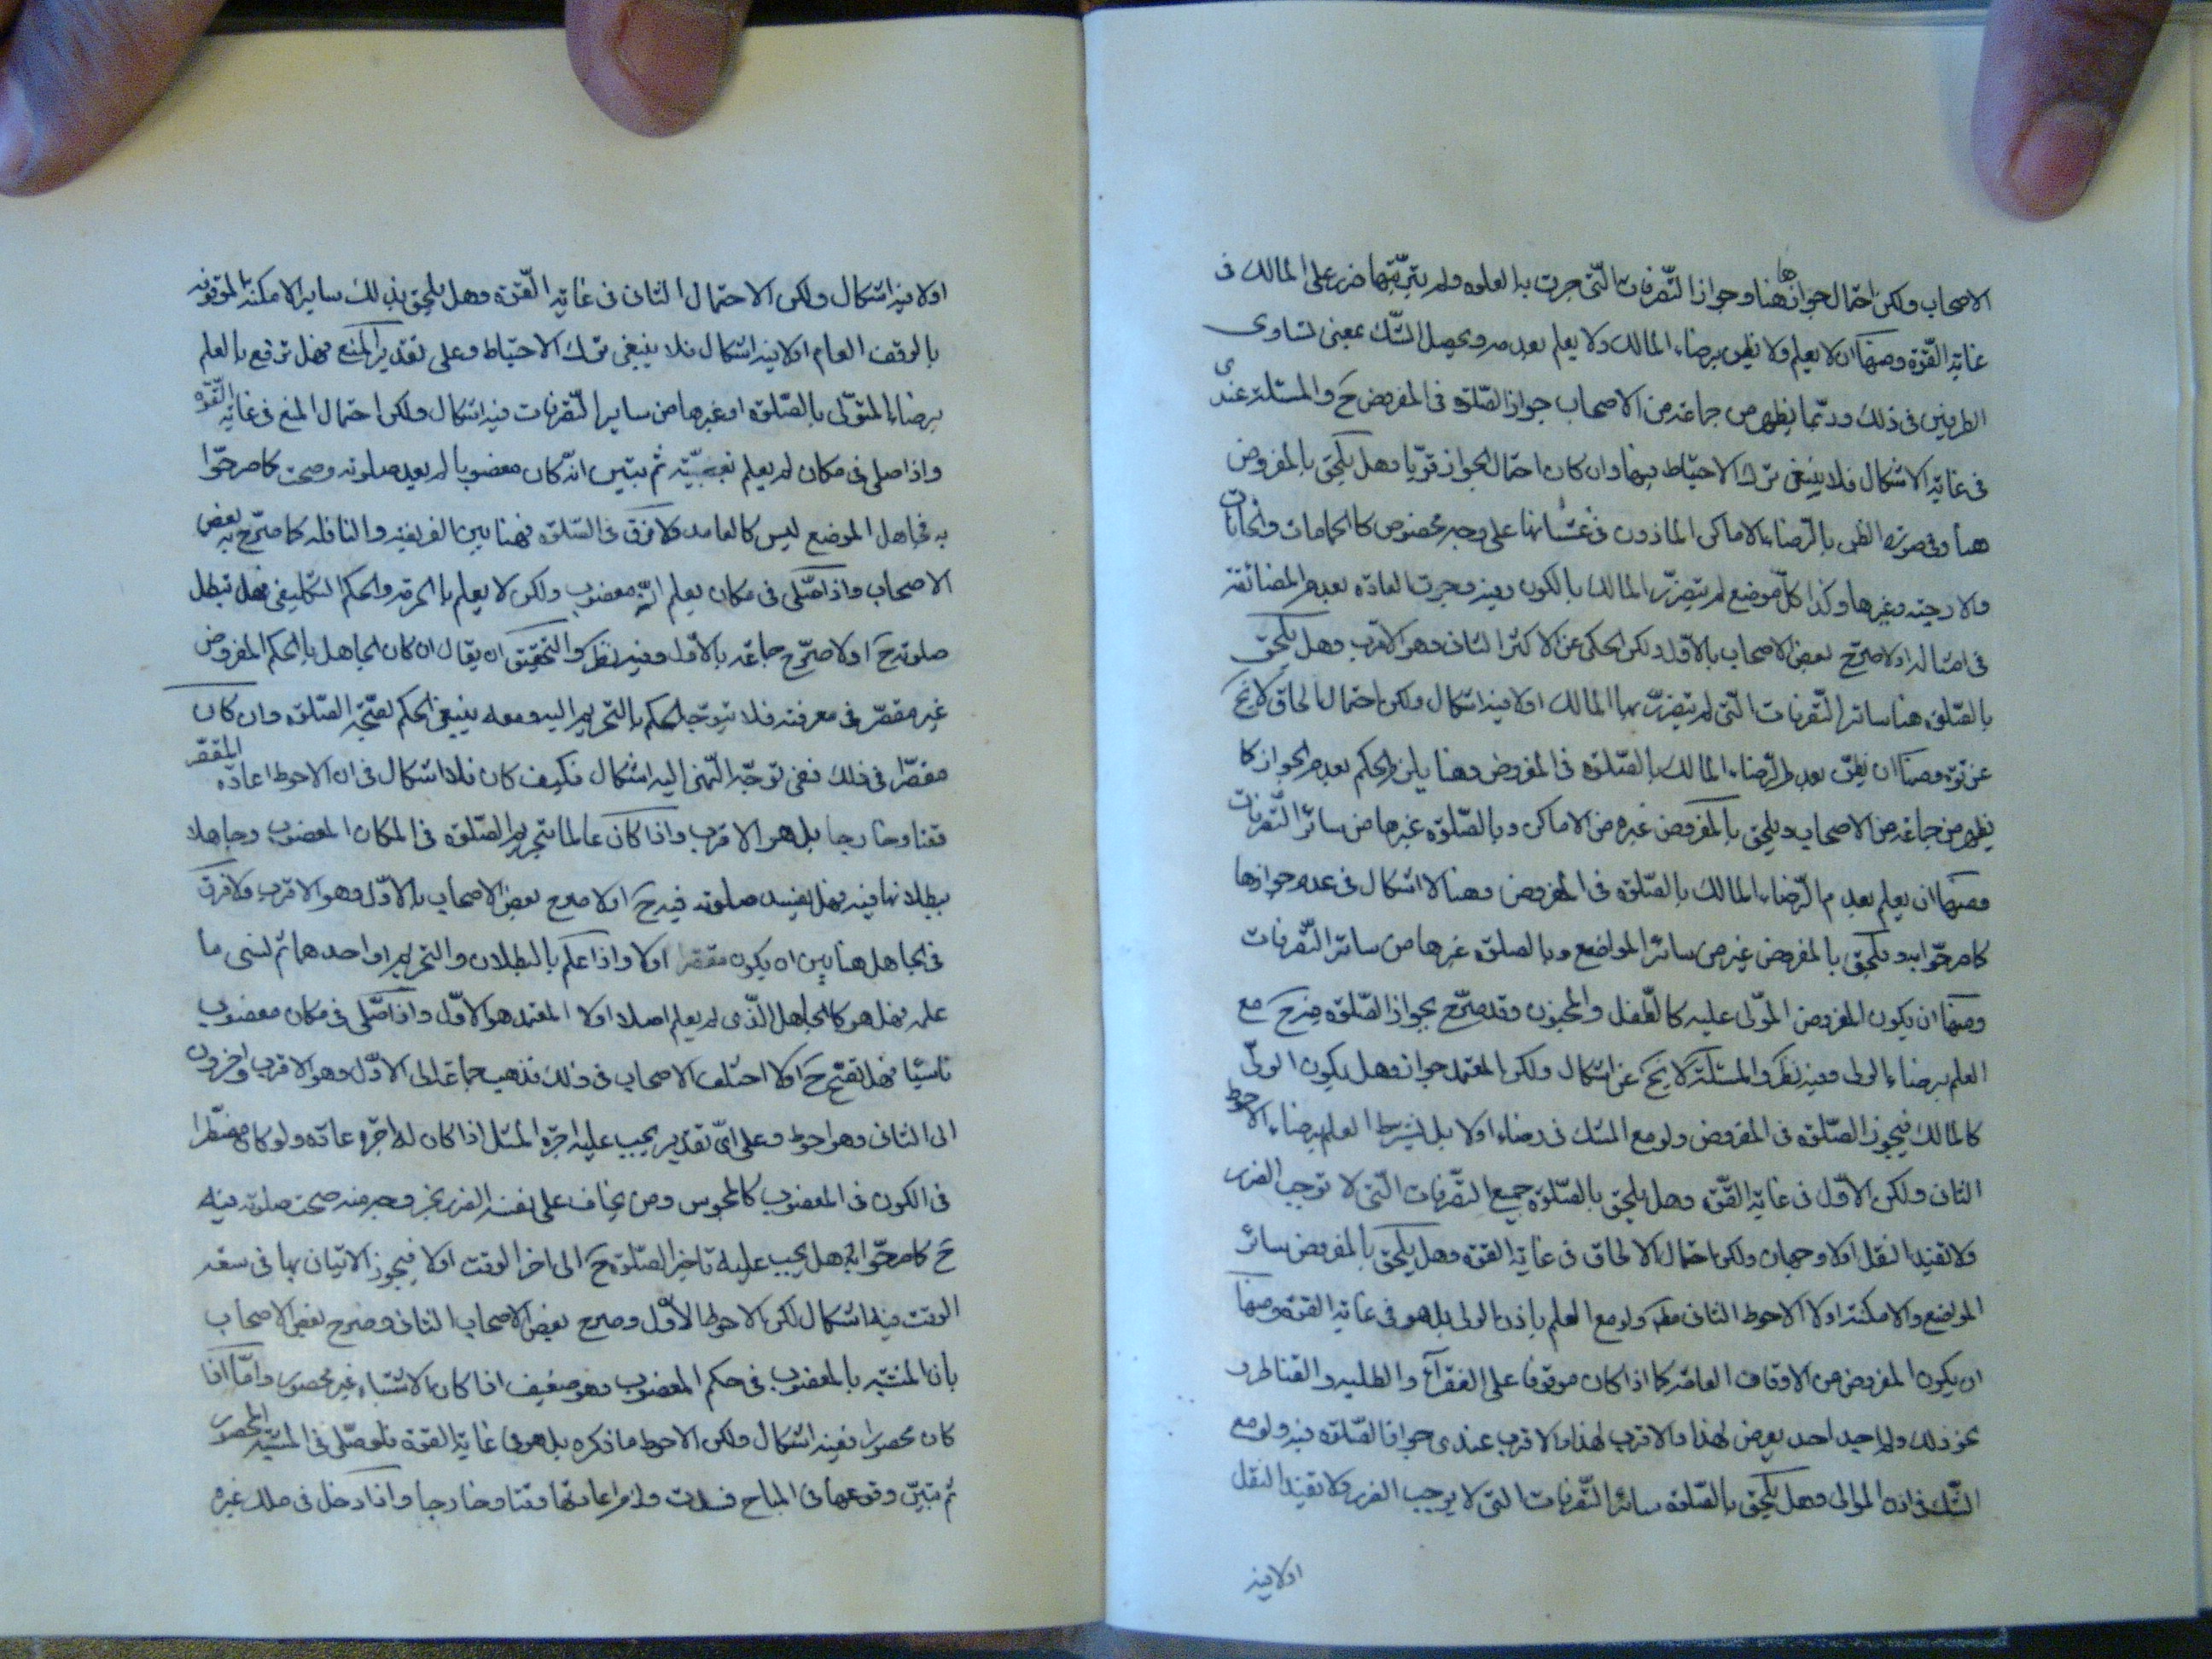 الاصحاب ولكن احتمال جوازها هنا وجواز التصرفات التى جرت بها العادة ولم يترتب بها ضرر على المالك فى
غاية القوة ومنها ان لا يعلم ولا يظن برضاء المالك ولا يعلم بعدمه ويحصل الشك بمعنى تساوى
الطرفين فى ذلك وربما يظهر من جماعة من الاصحاب جواز الصلوة فى المفروض ح والمسئلة عندى
فى غاية الاشكال فلا ينبغى ترك الاحتياط فيها وان كان احتمال الجواز قويا وهل يلحق بالمفروض
هنا وفى صورة الظن بالرضاء الاماكن الماذون فى غشيانها على وجه مخصوص كالحمامات والخانات
والارحية وغيرها وكذا كل موضع لم يتضرر المالك بالكون فيه وجرت العادة بعدم المضائقة
فى امثاله اولا صرح بعض الاصحاب بالاول ولكن الحكى عن الاكثر الثانى وهو الاقرب وهل يلحق
بالصلوة هنا سائر التصرفات التى لم يتضرر بها المالك اولا فيه اشكال ولكن احتمال الالحاق لا يخ
عن قوة ومنها ان يظن بعدم الرضاء المالك بالصلوة فى المفروض وهنا يلزم الحكم بعدم الجواز كما
يظهر من جماعة من الاصحاب ويلحق بالمفروض غيره من الاماكن وبالصلوة غيرها من سائر التصرفات
ومنها ان يعلم بعدم الرضاء المالك بالصلوة فى المفروض وهنا لا اشكال فى عدم جوازها
كما صرحوا به ويلحق بالمفروض غيره من سائر المواضع وبالصلوة غيرها من سائر التصرفات
ومنها ان يكون المفروض المولى عليه كالطفل والمجنون وقد صرح بجواز الصلوة فيه ح مع
العلم برضاء الولى وفيه نظر والمسئلة لا يخ عن اشكال ولكن المعتمد جوازه وهل يكون الولى
كالمالك فيجوز الصلوة فى المفروض ولو مع الشك فى رضاه اولا بل يشترط العلم برضاء الاحوط
الثانى ولكن الاول فى غاية القوة وهل يلحق بالصلوة جميع التصرفات التى لا توجب الضرر
ولا تفيد النقل اولا وجهان ولكن احتمال الالحاق فى غاية القوة وهل يلحق بالمفروض سائر
المواضع والامكنة اولا الاحوط الثانى مط ولو مع العلم باذن الولى بل هو فى غاية القوة ومنها
ان يكون المفروض من الاوقاف العامة كما اذا كان موقوفا على الفقراء والطلبه والقناطر و
نحو ذلك ولم احد احد بعرض لهذا والاقرب لهذا والاقرب عندى جواز الصلوة فيه ولو مع
الشك فى اذن الموالى وهل يلحق بالصلوة سائر التصرفات التى لا يوجب الضرر ولا تفيد النقل
اولا فيه
اولا فيه اشكال ولكن الاحتمال الثانى فى غاية القوة وهل يلحق بذلك سائر الامكنة الموقوفه
بالوقف العام اولا فيه اشكال فلا ينبغى ترك الاحتياط وعلى تقدير المنع فهل ترفع بالعلم
برضاء المتولى بالصلوة او غيرها من ساير التصرفات فيه اشكال ولكن احتمال المنع فى غاية القوة
واذا صلى فى مكان لم يعلم بغصبيته ثم تبين انه كان مغصوبا لم يعد صلوته وصحت كما صرحوا
به فجاهل الموضع ليس كالعامد ولا فرق فى الصلوة فهنا بين الفريضة والنافلة كما صرح به بعض
الاصحاب واذا صلى فى مكان يعلم انه مغصوب ولكن لا يعلم بالحرمة والحكم التكليفى فهل تبطل
صلوته ح اولا صرح جماعة بالاول وفيه نظر والتحقيق ان يقال ان كان الجاهل بالحكم المفروض
غير مقصر فى معرفته فلا يتوجه الحكم بالتحريم اليه ومعه ينبغى الحكم بصحة الصلوة وان كان
مقصرا فى ذلك ففى توجه النهى اليه اشكال فكيف كان فلا اشكال فى ان الاحوط اعادة المقصر
وقتا وخارجا بل هو الاقرب واذا كان عالما بتحريم الصلوة فى المكان المغصوب وجاهلا
ببطلانها فيه فهل يفسد صلوته فيه ح اولا صرح بعض الاصحاب بالاول وهو الاقرب ولا فرق
فى الجاهل هنا بين ان يكون مقصرا اولا واذا علم بالبطلان والتحريم او احدهما ثم نسى ما
علمه فهل هو كالجاهل الذى لم يعلم اصلا اولا المعتمد هو الاول واذا صلى فى مكان مغصوب
ناسيا فهل تصح ح اولا اختلف الاصحاب فى ذلك فذهب جماعة الى الاول وهو الاقرب واخرون
الى الثانى وهو احوط وعلى اى تقدير يجب عليه اجرة المثل اذا كان له اجرة عادة ولو كان مضطرا
فى الكون فى المغصوب كالمحبوس ومن يخاف على نفسه الضرر بخروجه منه صحت صلوته فيه
ح كما صرحوا به وهل يجب عليه تاخير الصلوة ح الى اخر الوقت اولا فيجوز الاتيان بها فى سعة
الوقت فيه اشكال لكن الاحوط الاول وصرح بعض الاصحاب الثانى وصرح بعض الاصحاب
بان المشتبه بالمغصوب فى حكم المغصوب وهو ضعيف اذا كان الاشتباه غير محصور واما اذا
كان محصورا ففيه اشكال ولكن الاحوط ما ذكره بل هو فى غاية القوة فلو صلى فى المشتبه المحصور
ثم تبين وقوعها فى المباح فسدت ولزم اعادتها وقتا وخارجا واذا دخل فى ملك غيره